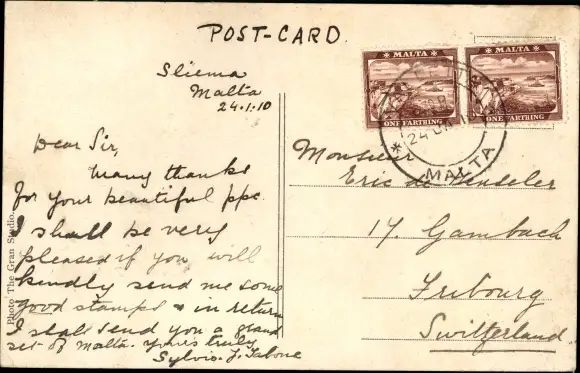 POST-CARD.
Sliema
Malta
24.1.10
Dear Sir,
Many thanks
for your beautiful ppc.
I shall be very
pleased if you will
kindly send me some
good stamps & in return
I shall send you a grand
set of Malta. Yours truly
Sylvio. J. Tabone
Photo The Gran Studio.
MALTA
ONE FARTHING
MALTA
ONE FARTHING
VALLETTA
24 JA 10
MALTA
Monsieur
Eric de
17. Gambach
Fribourg
Switzerland